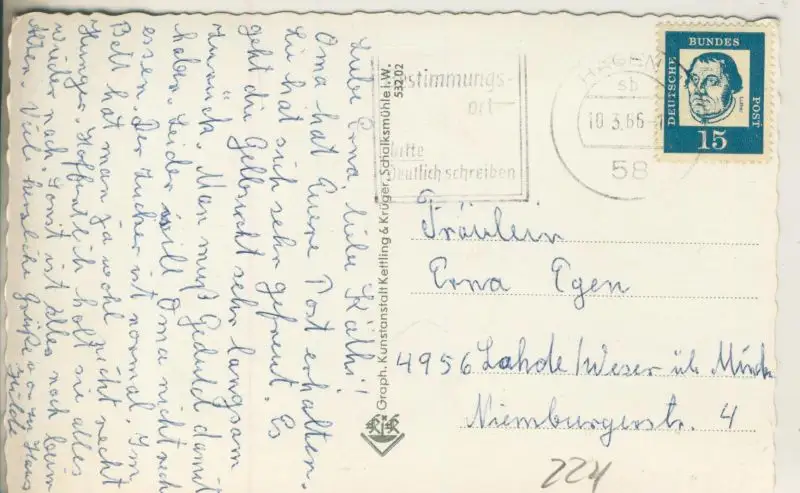 Liebe Erna, liebe Käthi!
Oma hat Eure Post erhalten.
Sie hat sich sehr gefreut. Es
geht die Gelbsucht sehr langsam
zurück. Man muß Geduld damit
haben. Leider will Oma nicht rech
essen. Der Zucker ist normal. Im
Bett hat man ja wohl nicht recht
Hunger. Hoffentlich holt sie alles
wieder nach. Sonst ist alles noch beim
Alten. Viele herzliche Grüße v. zu Haus
Hilde
Graph. Kunstanstalt Kettling & Krüger, Schalksmühle i.W.
532.02
K&K
Bestimmungs-
ort
bitte
deutlich schreiben
HAGEN
sb
10.3.66-1
58
DEUTSCHE BUNDES POST
Luther
15
Fräulein
Erna Egen
4956 Lahde/Weser üb. Mind
Niemburgerstr. 4
224